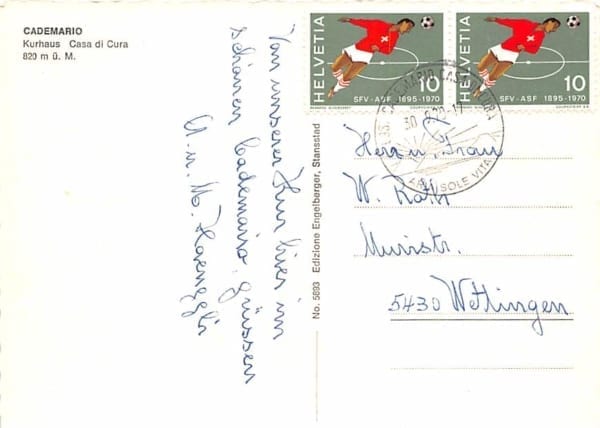 CADEMARIO
Kurhaus Casa di Cura
820 m ü. M.
Von unserer Kur hier im
schönen Cademario, grüssen
A. u. M. Haenggli
No. 5893 Edizione Engelberger, Stansstad
HELVETIA
10
SFV-ASF 1895-1970
HELVETIA
10
SFV-ASF 1895-1970
CADEMARIO CASA
SOLE VITA
Herr u. Frau
W. Roth
Muristr.
5430 Wettingen